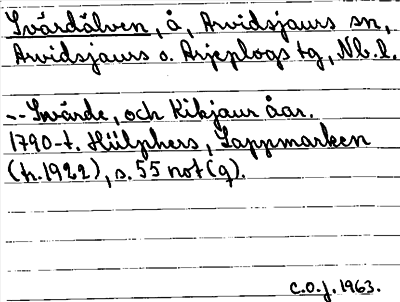 Svärdälven, å, Arvidsjaurs sn,
Arvidsjaurs o. Arjeplogs tg, Nb. l.
-- Swärde, och Kikjaur åar.
1790-t. Hülphers, Lappmarken
(tr. 1922), s. 55 not (q).
C.O.J. 1963.